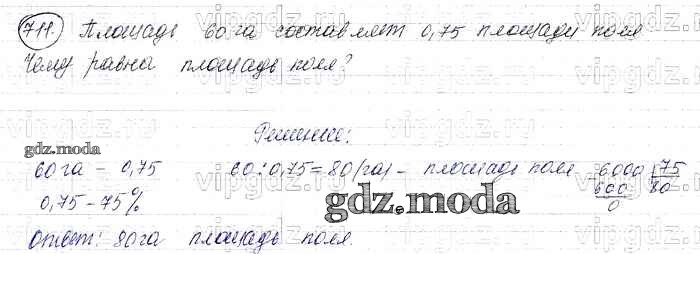 711. Площадь 60 га составляет 0,75 площади поля
Чему равна площадь поля?
Решение:
gdz.moda
60 га – 0,75 60 : 0,75 = 80 (га) – площадь поля 6000 75
0,75 – 75% 600 80
0
gdz.moda
Ответ: 80 га площадь поля.
vipgdz.ru vipgdz.ru vipgdz.ru vipgdz.ru